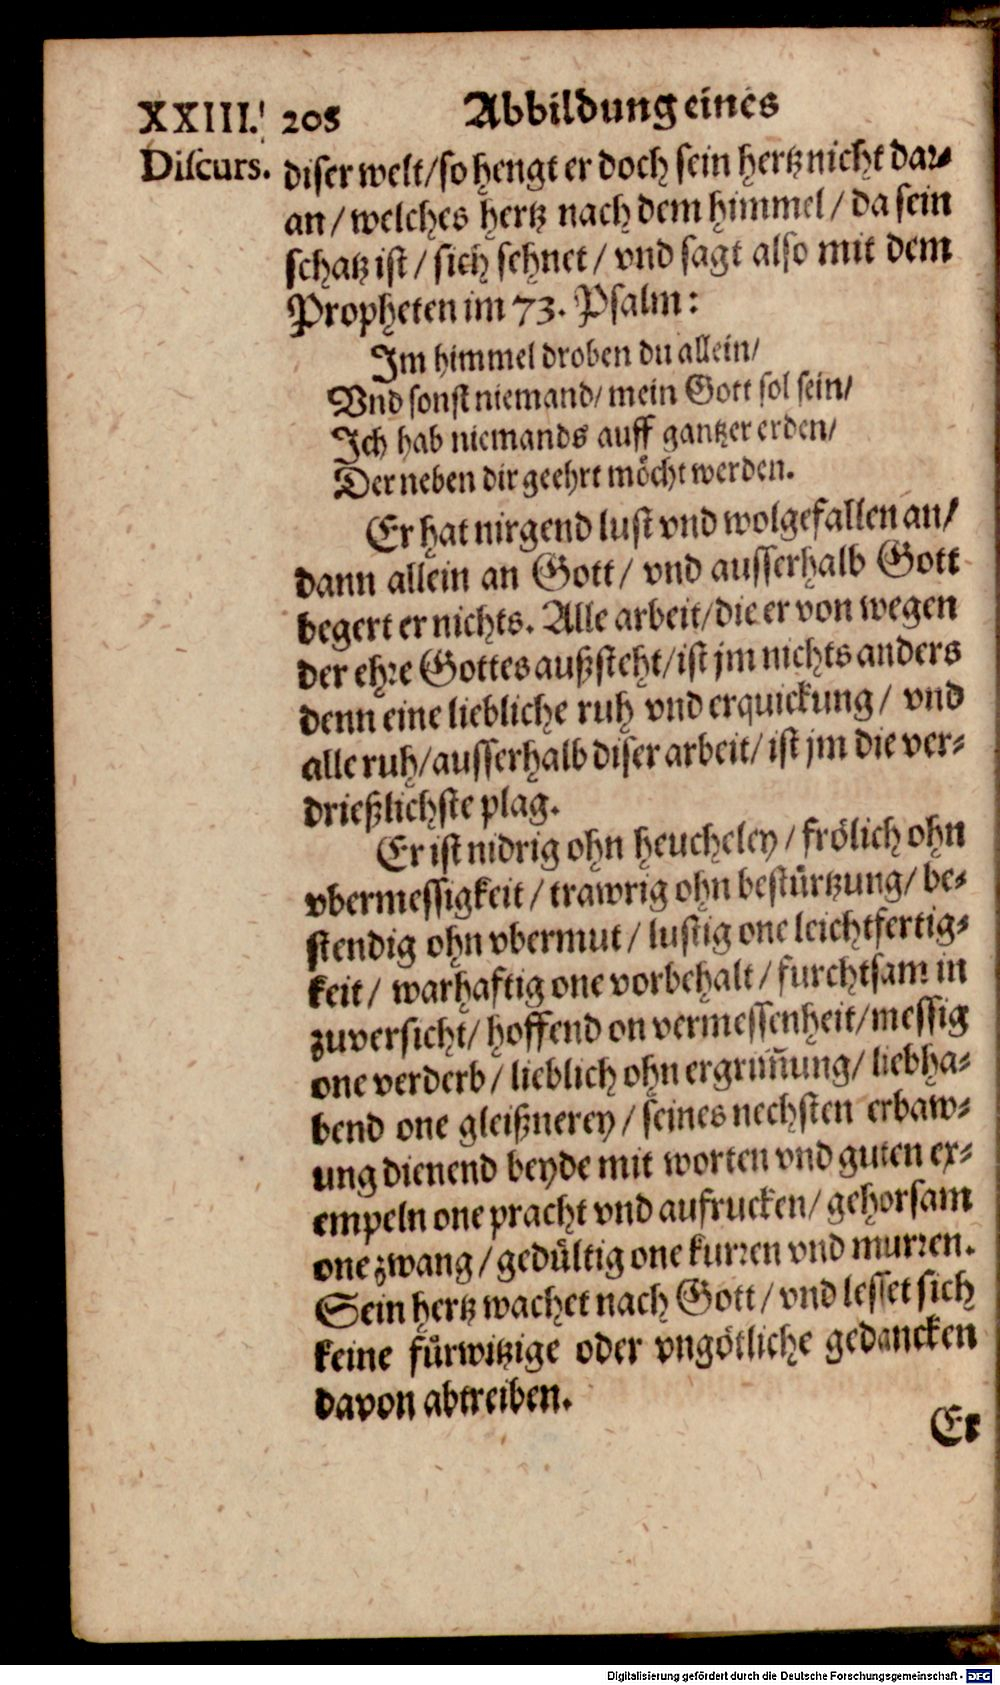 XXIII. 208 Abbildung eines
Discurs.
diser welt/so hengt er doch sein hertz nicht dar⸗
an/ welches hertz nach dem himmel/ da sein
schatz ist/ sich sehnet/ vnd sagt also mit dem
Propheten im 73. Psalm:
Im himmel droben du allein/
Vnd sonst niemand/ mein Gott sol sein/
Ich hab niemands auff gantzer erden/
Der neben dir geehrt möcht werden.
Er hat nirgend lust vnd wolgefallen an/
dann allein an Gott/ vnd ausserhalb Gott
begert er nichts. Alle arbeit/die er von wegen
der ehre Gottes außsteht/ist jm nichts anders
denn eine liebliche ruh vnd erquickung/ vnd
alle ruh/ausserhalb diser arbeit/ ist jm die ver⸗
drießlichste plag.
Er ist nidrig ohn heucheley/ frölich ohn
vbermessigkeit/ trawrig ohn bestürtzung/ be⸗
stendig ohn vbermut/ lustig one leichtfertig⸗
keit/ warhaftig one vorbehalt/ furchtsam in
zuversicht/ hoffend on vermessenheit/messig
one verderb/ lieblich ohn ergrim̃ung/ liebha⸗
bend one gleißnerey/ seines nechsten erbaw⸗
ung dienend beyde mit worten vnd guten ex⸗
empeln one pracht vnd aufrucken/ gehorsam
one zwang/ gedültig one kurren vnd murren.
Sein hertz wachet nach Gott/ vnd lesset sich
keine fürwitzige oder vngötliche gedancken
davon abtreiben.
Er
Digitalisierung gefördert durch die Deutsche Forschungsgemeinschaft - DFG